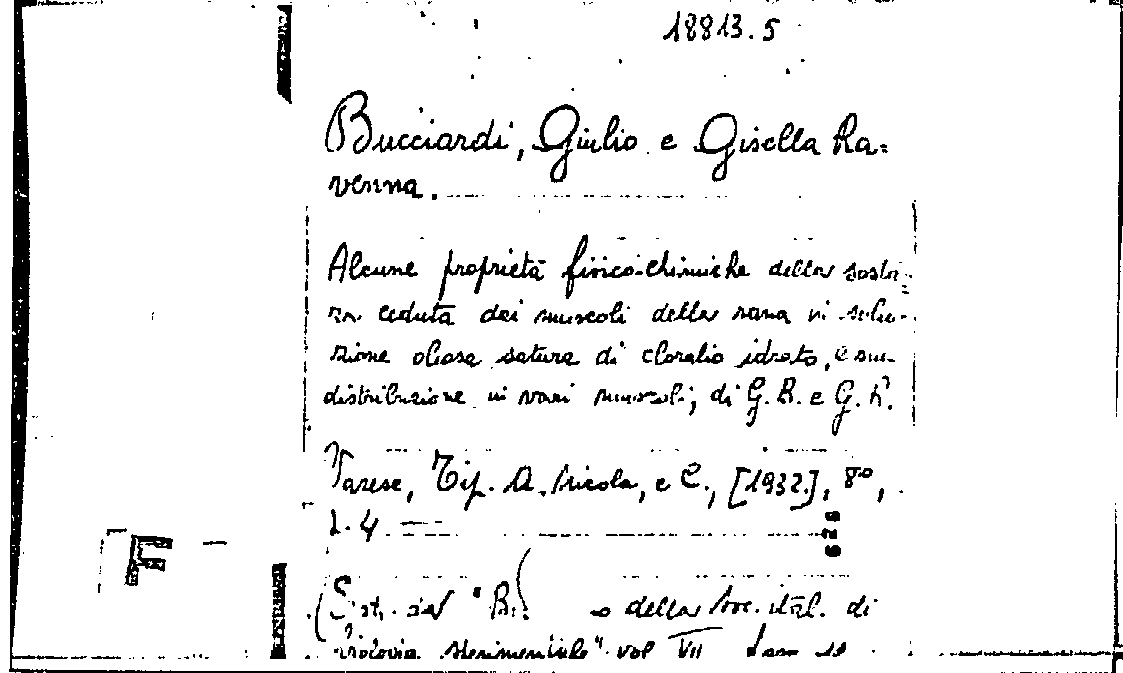 18813.5
Bucciardi, Giulio e Gisella Ra=
venna.
Alcune proprietà fisico-chimiche della sostan=
za ceduta dai muscoli della rana in solu-
zione oleosa satura di cloralio idrato, e sua
distribuzione in vari muscoli; di G. B. e G. R.
Varese, Tip. A. Nicola, e C., [1932], 8°,
2. 4
628
F
(Estr. dal "B. della Soc. ital. di
Biologia sperimentale" vol VII